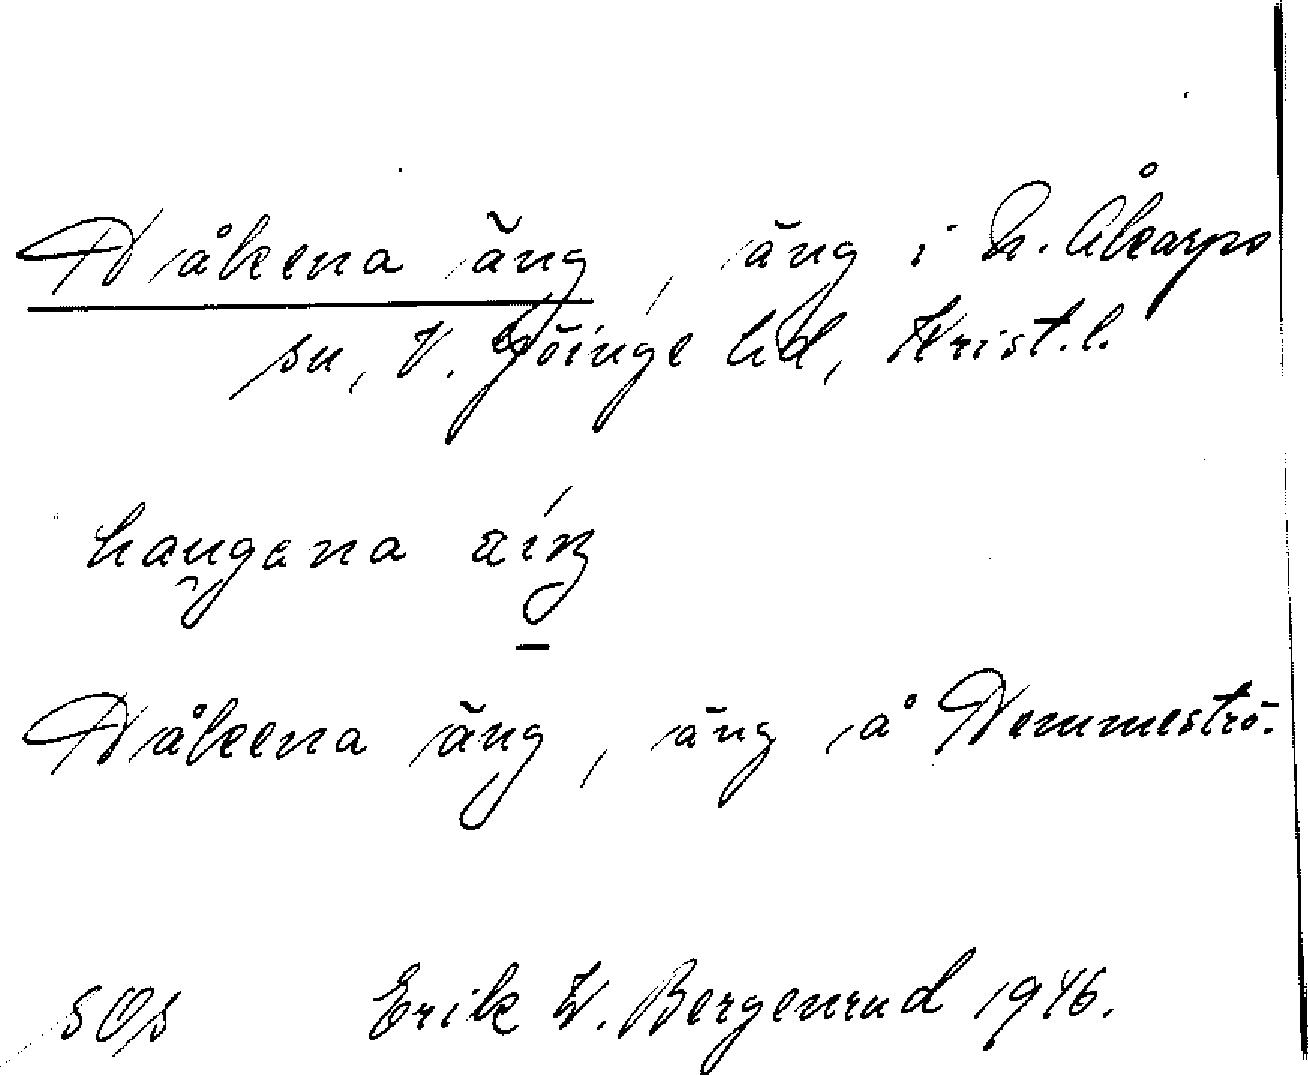 Håkena äng, äng i N. Åkarps
sn, V. Göinge hd, Krist.l.
haugana äiŋ
Håkena äng, äng å Hemmeströ.
SOS Erik W. Bergenrud 1946.